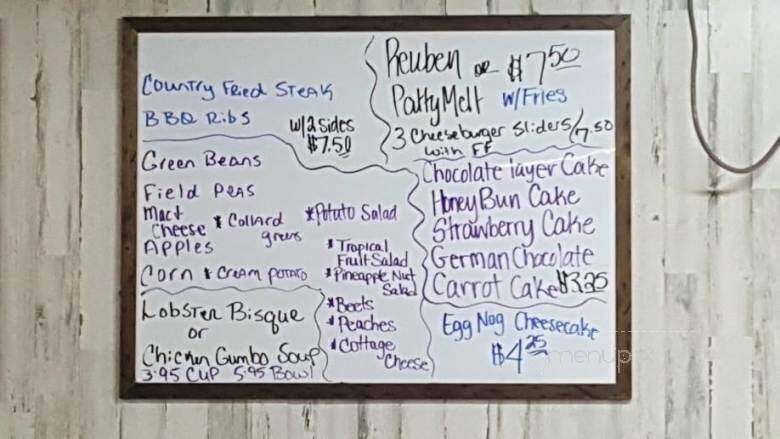 Country Fried Steak
BBQ Ribs
w/2 sides
$7.50
Reuben or $7.50
Patty Melt w/Fries
3 Cheeseburger Sliders/7.50
with FF
Green Beans
Field Peas
Mac+
Cheese * Collard
greens
Apples
Corn * Cream potato
*Potato Salad
*Tropical
Fruit Salad
*Pineapple Nut
Salad
*Beets
*Peaches
*Cottage
Cheese
Chocolate layer Cake
Honey Bun Cake
Strawberry Cake
German Chocolate
Carrot Cake $3.25
Lobster Bisque
or
Chicken Gumbo Soup
3.95 Cup 5.95 Bowl
Egg Nog Cheesecake
$4.25
menupix